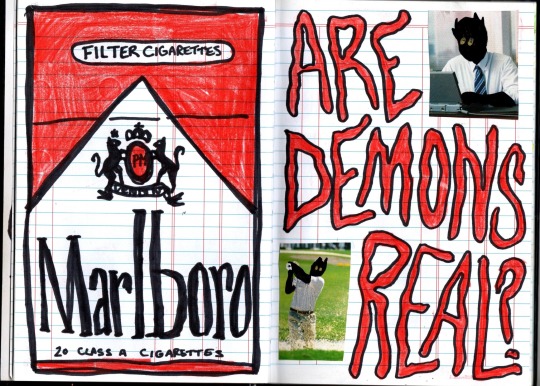 FILTER CIGARETTES
PM
Marlboro
20 CLASS A CIGARETTES
ARE
DEMONS
REAL?